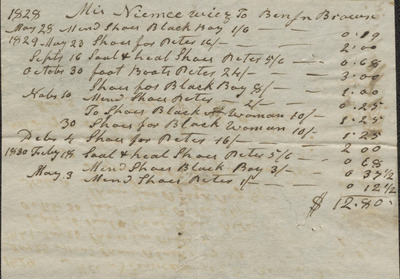 1828 Mis Niemcewiez To Benjn Brown
May 28 Mend Shoes Black Boy 1/6 — 0.19
1829 May 23 Shoes for Petes 16/ — 2.00
Sept 16 Soal & heal Shoes Petes 5/6 — 0.68
Octobs 30 foot Boots Petes 24/ — 3.00
Shoes for Black Boy 8/ — 1.00
Nobs 10 Mend Shoes Petes — 2/ — 0.25
To Shoes Black Woman 10/ — 1.25
30 Shoes for Black Woman 10/ — 1.25
Debs 4 Shoes for Petes 16/ — 2 00
1830 Feby 18 Soal & heal Shoes Petes 5/6 — 0 68
May 3 Mend Shoes Black Boy 3/ — 0 37 1/2
Mend Shoes Petes 1/ — 0 12 1/2
$ 12.80